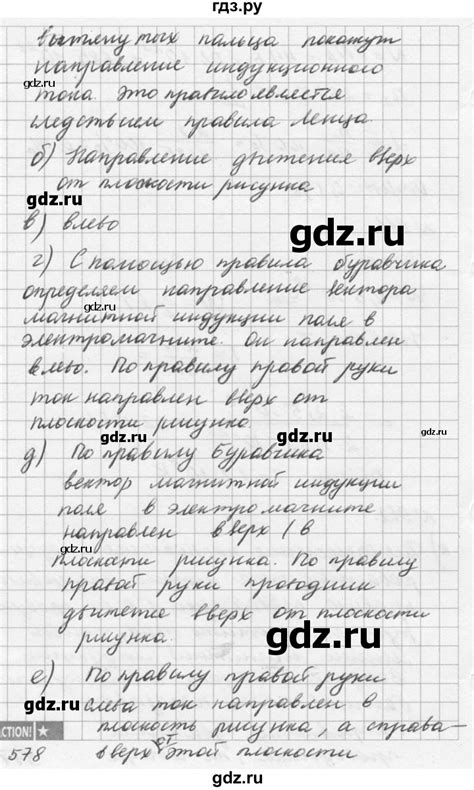 гдз.ру
вытянутых пальца покажут
направление индукционного
тока. Это правило является
следствием правила Ленца.
б) Направление движения вверх
от плоскости рисунка
gdz.ru
в) влево
gdz.ru
г) С помощью правила буравчика
определяем направление вектора
gdz.ru
магнитной индукции поля в
электромагните. Он направлен
gdz.ru
влево. По правилу правой руки
ток направлен вверх от
плоскости рисунка.
gdz.ru
д) По правилу Буравчика
gdz.ru
вектор магнитной индукции
поля в электромагните
направлен вверх (в
gdz.ru
плоскости рисунка. По правилу
правой руки проводник
движется вверх от плоскости
рисунка.
gdz.ru
gdz.ru
е) По правилу правой руки
слева ток направлен в
gdz.ru
плоскость рисунка, а справа-
ACTION!
578 вверх от этой плоскости
gdz.ru
gdz.ru